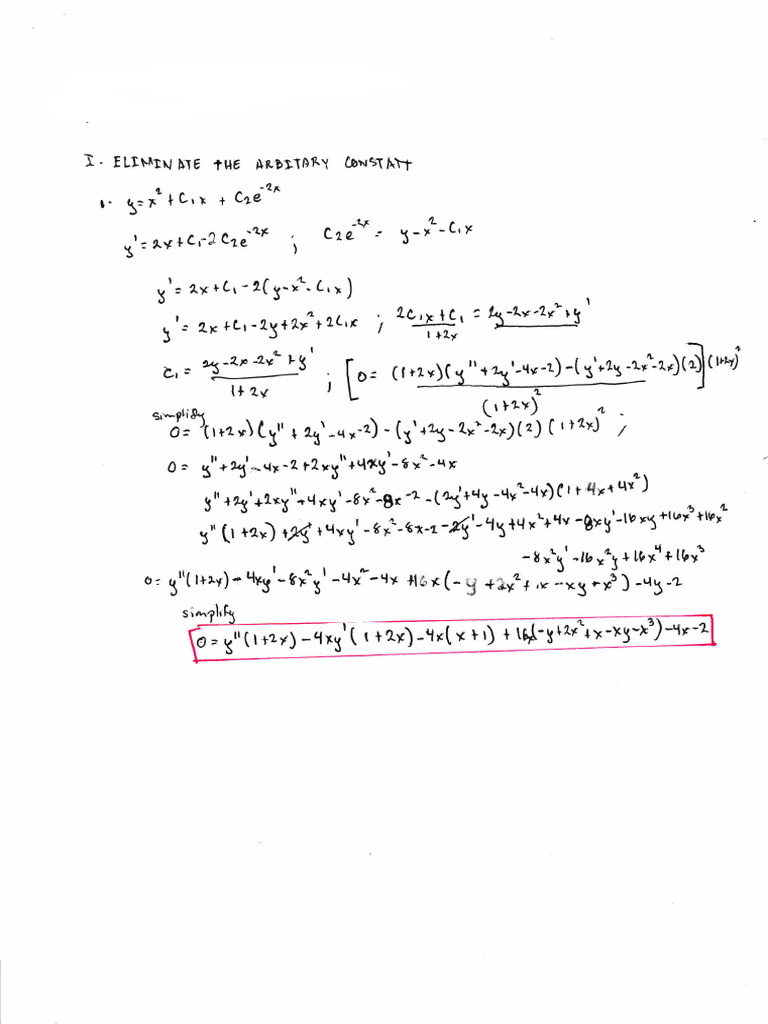 I. ELIMINATE THE ARBITARY CONSTATT
1. y = x² + C₁x + C₂e^(-2x)
y' = 2x + C₁ - 2C₂e^(-2x) ; C₂e^(-2x) = y - x² - C₁x
y' = 2x + C₁ - 2(y - x² - C₁x)
y' = 2x + C₁ - 2y + 2x² + 2C₁x ; (2C₁x + C₁)/(1+2x) = 2y - 2x - 2x² + y'
C₁ = (2y - 2x - 2x² + y')/(1+2x) ; [0 = ((1+2x)(y'' + 2y' - 4x - 2) - (y' + 2y - 2x² - 2x)(2))/(1+2x)²](1+2x)²
simplify
0 = (1+2x)(y'' + 2y' - 4x - 2) - (y' + 2y - 2x² - 2x)(2)(1+2x)² ;
0 = y'' + 2y' - 4x - 2 + 2xy'' + 4xy' - 8x² - 4x
y'' + 2y' + 2xy'' + 4xy' - 8x² - 8x - 2 - (2y' + 4y - 4x² - 4x)(1 + 4x + 4x²)
y''(1+2x) + 2y' + 4xy' - 8x² - 8x - 2 - 2y' - 4y + 4x² + 4x - 8xy' - 16xy + 16x³ + 16x²
- 8x²y' - 16x²y + 16x⁴ + 16x³
0 = y''(1+2x) - 4xy' - 8x²y' - 4x² - 4x + 16x(-y + 2x² + x - xy + x³) - 4y - 2
simplify
0 = y''(1+2x) - 4xy'(1+2x) - 4x(x+1) + 16x(-y + 2x² + x - xy - x³) - 4x - 2